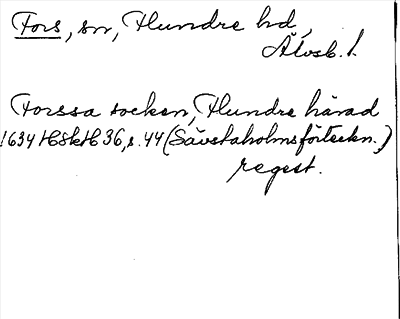 Fors, sn, Flundre hd,
Älvsb. l.
Forssa socken, Flundre härad
1634 HSH 36, s. 44 (Sävstaholmsförteckn.)
regest.